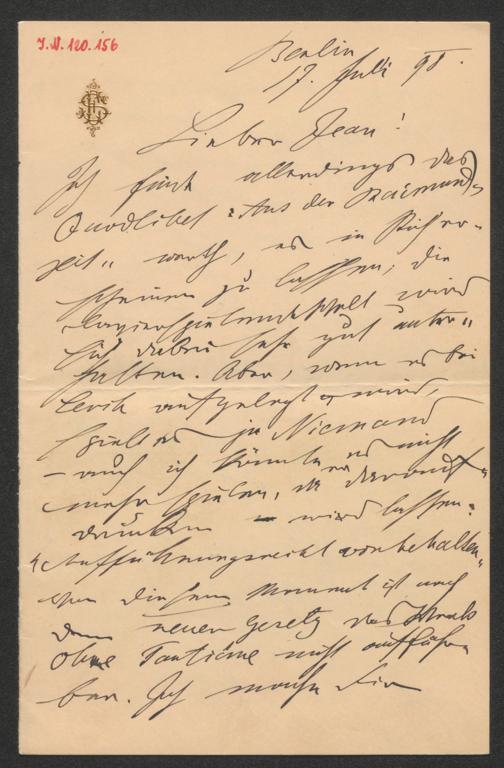 I.N. 120.156
Berlin
17. Juli 98.
Lieber Jean!
Ich finde allerdings das
Quodlibet "Aus der Raimund-
zeit" werth, es in Stich er-
scheinen zu lassen, die
Clavierspielende Welt wird
sich dabei sehr gut unter-
halten. Aber, wenn es bei
Levin aufgelegt wird,
spielt es ja Niemand
– auch ich könnte es nicht
mehr spielen, da er darauf
drucken – wird lassen:
"Aufführungsrecht vorbehalten"
Von diesem Moment ist nach
dem neuen Gesetz das Werk
ohne Tantième nicht aufführ-
bar. Ich mache Dir